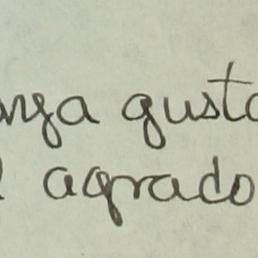 anza gusto
l agrado